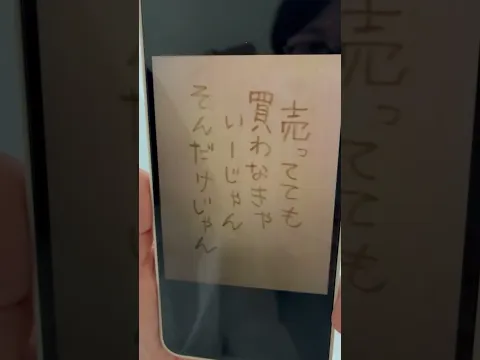 売ってても
買わなきゃ
いーじゃん
そんだけじゃん